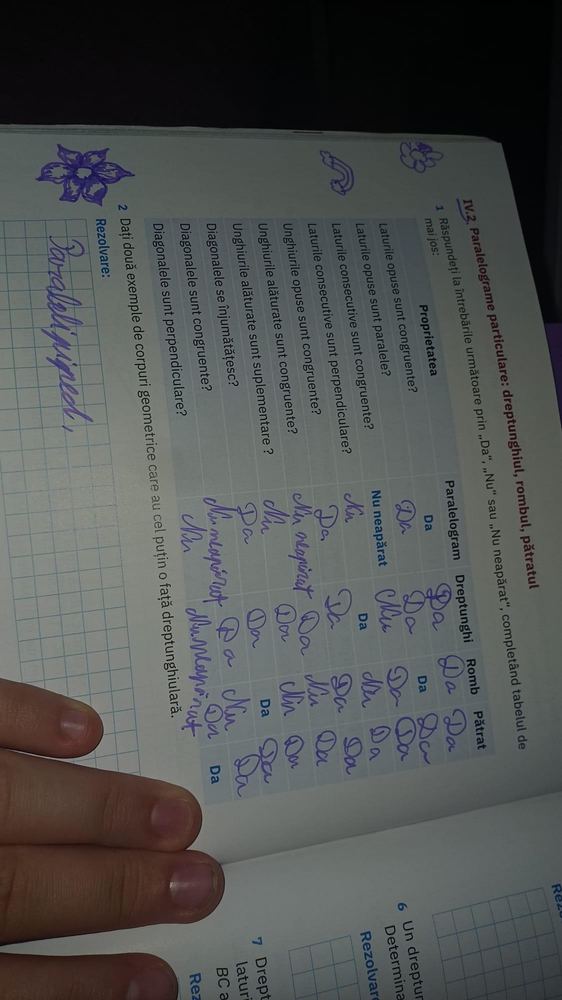 IV.2. Paralelograme particulare: dreptunghiul, rombul, pătratul
1 Răspundeți la întrebările următoare prin „Da“, „Nu“ sau „Nu neapărat“, completând tabelul de
mai jos:
Proprietatea Paralelogram Dreptunghi Romb Pătrat
Laturile opuse sunt congruente? Da Da Da Da
Laturile opuse sunt paralele? Da Da Da Da
Laturile consecutive sunt congruente? Nu neapărat Nu Da Da
Laturile consecutive sunt perpendiculare? Nu Da Nu Da
Unghiurile opuse sunt congruente? Da Da Da Da
Unghiurile alăturate sunt congruente? Nu neapărat Da Nu Da
Unghiurile alăturate sunt suplementare ? Nu Da Nu Da
Diagonalele se înjumătățesc? Da Da Da Da
Diagonalele sunt congruente? Nu neapărat Da Nu Da
Diagonalele sunt perpendiculare? Nu Nu neapărat Da Da
2 Dați două exemple de corpuri geometrice care au cel puțin o față dreptunghiulară.
Rezolvare:
Paralelipiped,
6 Un dreptun
Determina
Rezolvar
7 Drept
laturi
BC a
Rez